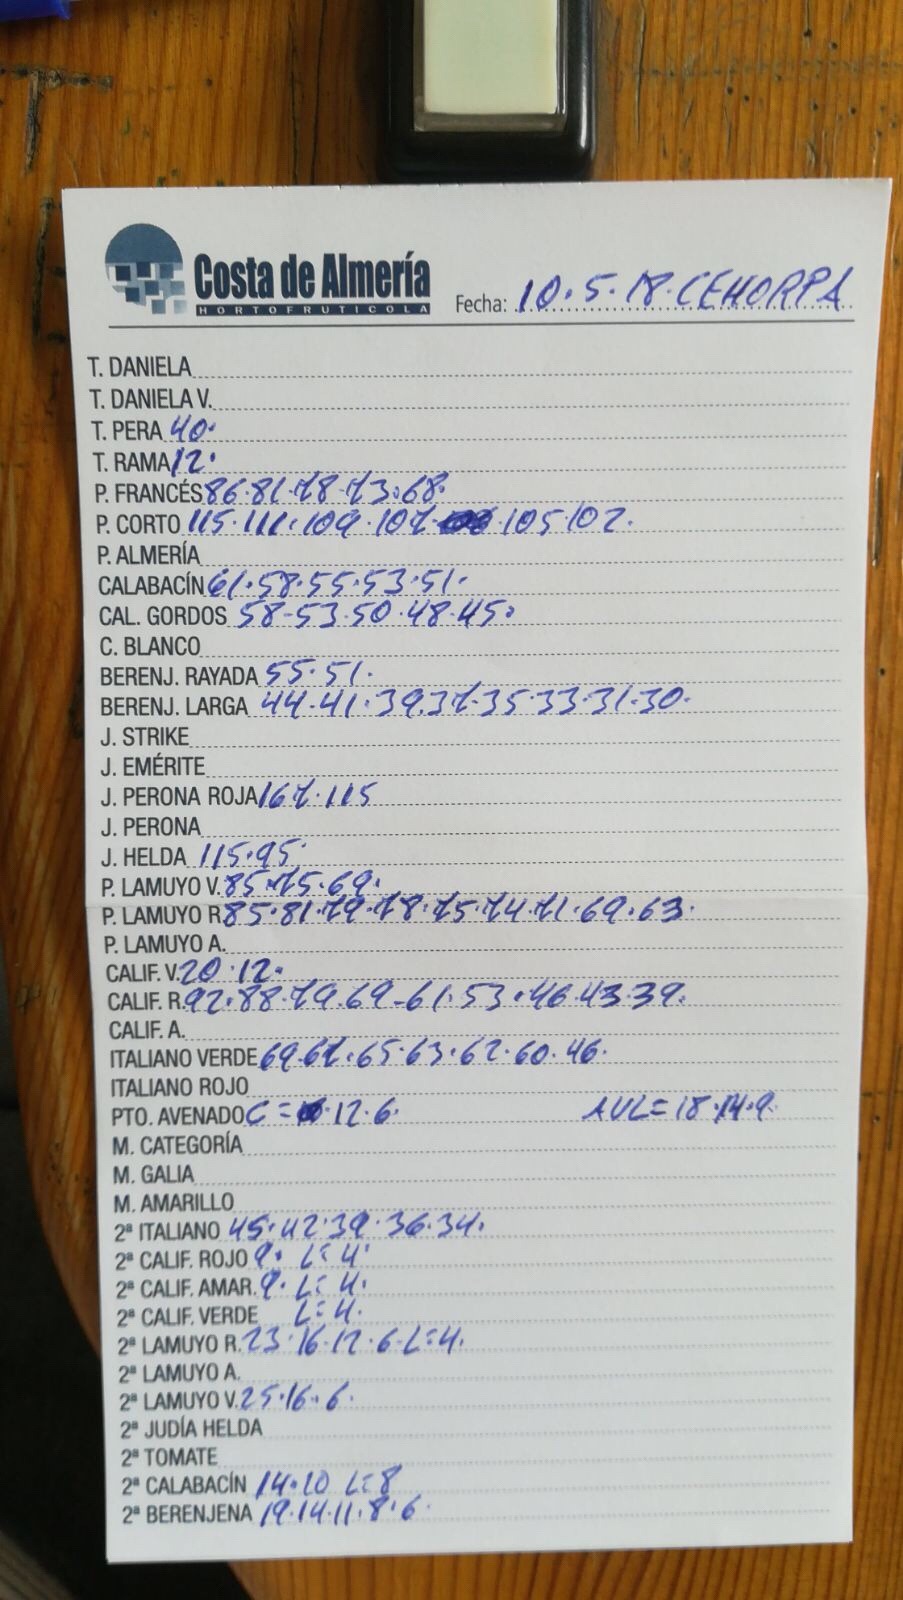 Costa de Almería
HORTOFRUTICOLA
Fecha: 10.5.18.CEHORPA
T. DANIELA
T. DANIELA V.
T. PERA 40.
T. RAMA 12.
P. FRANCÉS 86.81.78.73.68.
P. CORTO 115.111.109.107. 105 102.
P. ALMERÍA
CALABACÍN 61.58.55.53.51.
CAL. GORDOS 58-53.50.48.45.
C. BLANCO
BERENJ. RAYADA 55.51.
BERENJ. LARGA 44.41.39.37.35.33.31.30.
J. STRIKE
J. EMÉRITE
J. PERONA ROJA 167.115
J. PERONA
J. HELDA 115.95.
P. LAMUYO V. 85.75.69.
P. LAMUYO R 85.81.79.78.75.74.71.69.63.
P. LAMUYO A.
CALIF. V. 20.12.
CALIF. R. 92.88.79.69-61.53.46.43.39.
CALIF. A.
ITALIANO VERDE 69.67.65.63.62.60.46.
ITALIANO ROJO
PTO. AVENADO C = 12.6. AVL=18.14.9.
M. CATEGORÍA
M. GALIA
M. AMARILLO
2ª ITALIANO 45.42.39.36.34.
2ª CALIF. ROJO 9. L=4.
2ª CALIF. AMAR. 9. L=4.
2ª CALIF. VERDE L=4.
2ª LAMUYO R. 23.16.12.6.L=4.
2ª LAMUYO A.
2ª LAMUYO V. 25.16.6.
2ª JUDÍA HELDA
2ª TOMATE
2ª CALABACÍN 14.10 L=8
2ª BERENJENA 19.14.11.8.6.